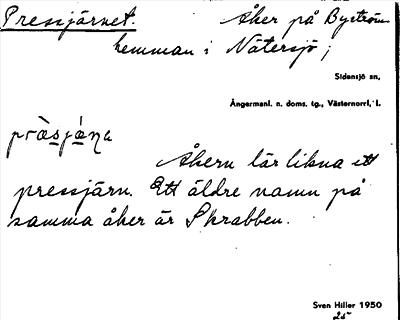 Pressjärnet. Åker på Byström
hemman i Nätersjö;
Sidensjö sn,
Ångermanl. n. doms. tg., Västernorrl. l.
Åkern lär likna ett
pressjärn. Ett äldre namn på
samma åker är Skrabben.
Sven Hiller 1950
25